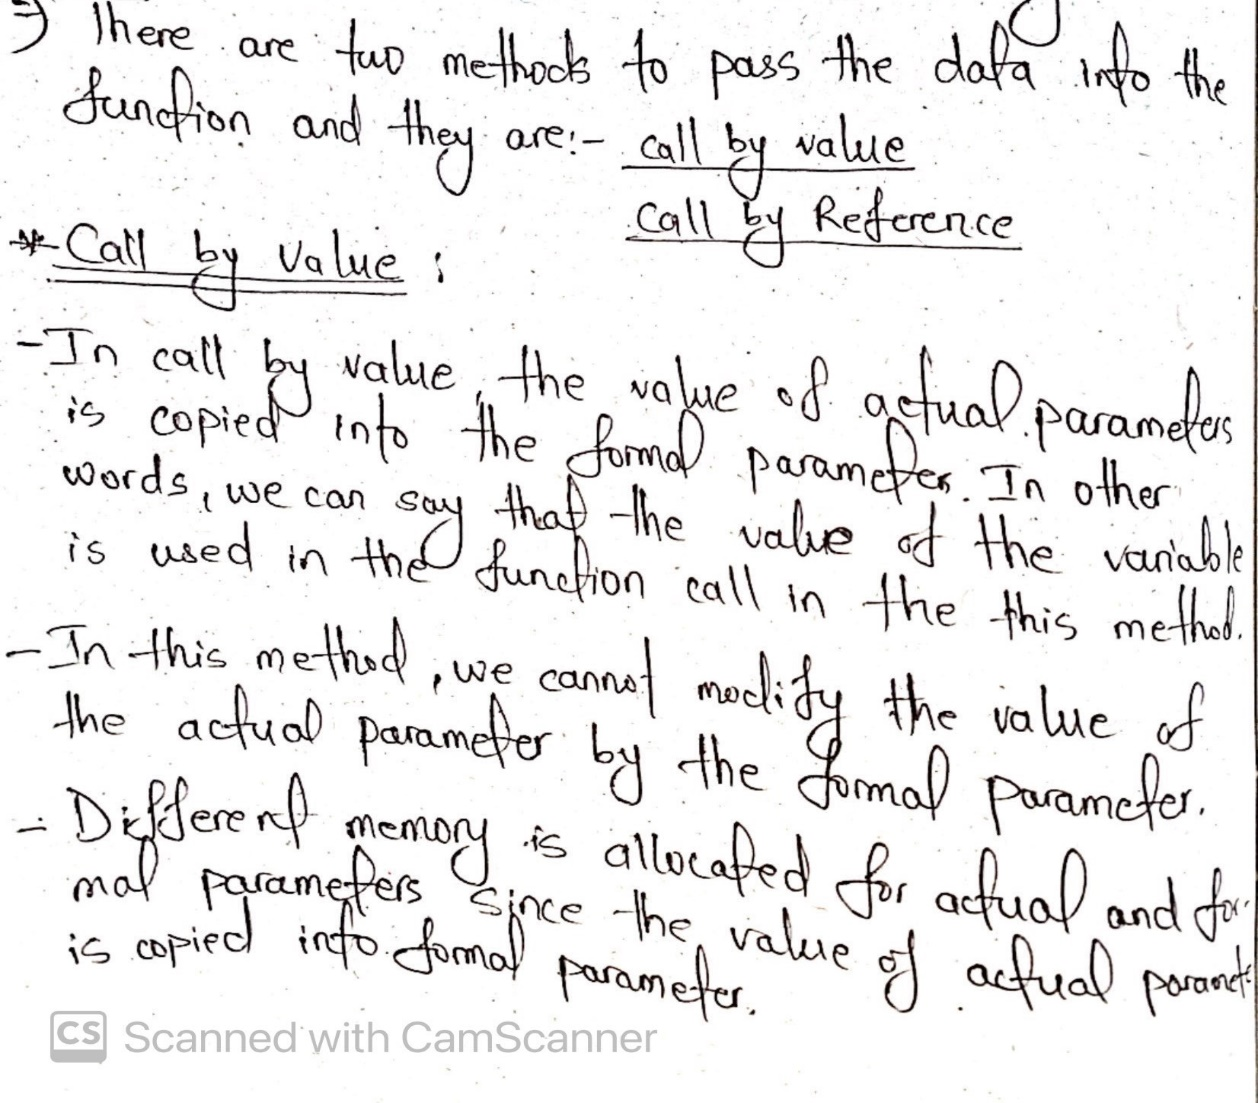 ⇒ There are two methods to pass the data into the
function and they are:- call by value
Call by Reference
* Call by value :
- In call by value, the value of actual parameters
is copied into the formal parameter. In other
words, we can say that the value of the variable
is used in the function call in the this method.
- In this method, we cannot modify the value of
the actual parameter by the formal parameter.
- Different memory is allocated for actual and for-
mal parameters since the value of actual paramet
is copied into formal parameter.
CS Scanned with CamScanner